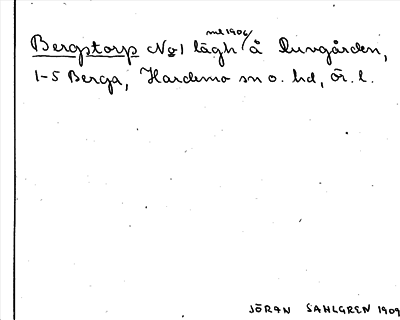 ml 1906
Bergstorp No 1 lägh å Lungården,
1-5 Berga, Hardemo sn o. hd, Ör. l.
JÖRAN SAHLGREN 1909